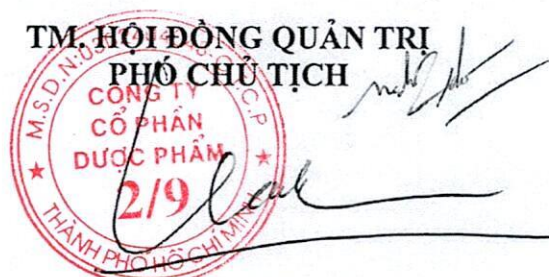 TM. HỘI ĐỒNG QUẢN TRỊ
PHÓ CHỦ TỊCH
CÔNG TY
CỔ PHẦN
DƯỢC PHẨM
2/9
THÀNH PHỐ HỒ CHÍ MINH